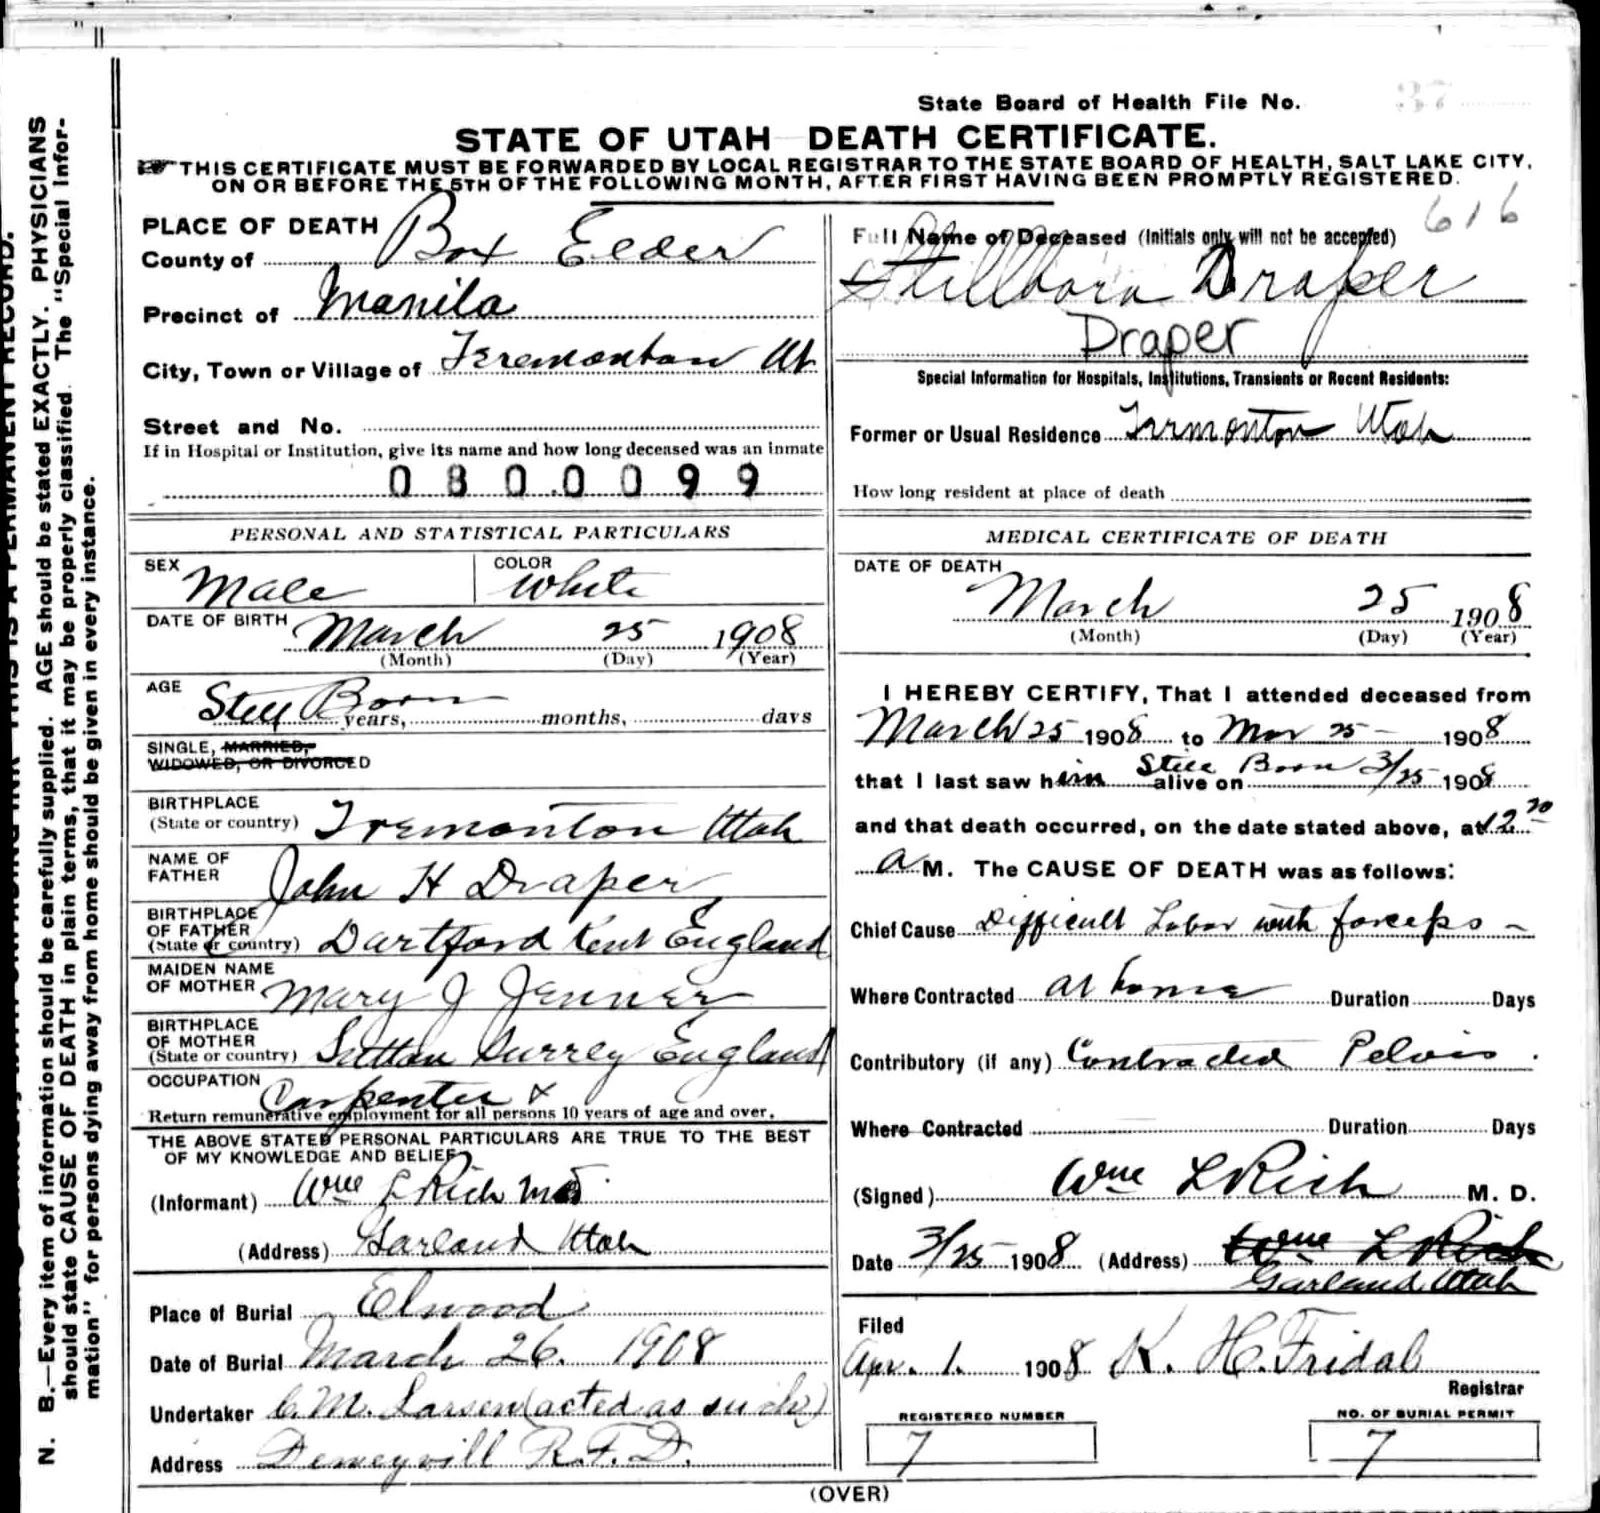 State Board of Health File No. 37
STATE OF UTAH DEATH CERTIFICATE.
THIS CERTIFICATE MUST BE FORWARDED BY LOCAL REGISTRAR TO THE STATE BOARD OF HEALTH, SALT LAKE CITY,
ON OR BEFORE THE 5TH OF THE FOLLOWING MONTH, AFTER FIRST HAVING BEEN PROMPTLY REGISTERED.
616
PLACE OF DEATH
County of Box Elder
Precinct of Manila
City, Town or Village of Teremontan Ut
Street and No.
If in Hospital or Institution, give its name and how long deceased was an inmate
0 8 0 0 0 9 9
PERSONAL AND STATISTICAL PARTICULARS
SEX Male
COLOR White
DATE OF BIRTH March 25 1908
(Month) (Day) (Year)
AGE Still Born years, months, days
SINGLE, MARRIED,
WIDOWED, OR DIVORCED
BIRTHPLACE
(State or country) Tremonton Utah
NAME OF
FATHER John H Draper
BIRTHPLACE
OF FATHER
(State or country) Dartford Kent England
MAIDEN NAME
OF MOTHER Mary J Jenner
BIRTHPLACE
OF MOTHER
(State or country) Sutton Surrey England
OCCUPATION Carpenter x
Return remunerative employment for all persons 10 years of age and over.
THE ABOVE STATED PERSONAL PARTICULARS ARE TRUE TO THE BEST
OF MY KNOWLEDGE AND BELIEF
(Informant) Wm L Rich MD
(Address) Garland Utah
Place of Burial Elwood
Date of Burial March 26. 1908
Undertaker C. M. Larsen (acted as such)
Address Deweyvill R.F.D.
Full Name of Deceased (Initials only will not be accepted)
Stillborn Draper
Draper
Special Information for Hospitals, Institutions, Transients or Recent Residents:
Former or Usual Residence Tremonton Utah
How long resident at place of death
MEDICAL CERTIFICATE OF DEATH
DATE OF DEATH
March 25 1908
(Month) (Day) (Year)
I HEREBY CERTIFY, That I attended deceased from
March 25 1908 to Mar 25 - 1908
Still Born
that I last saw him alive on 3/25 1908
and that death occurred, on the date stated above, at 12 20
a M. The CAUSE OF DEATH was as follows:
Chief Cause Difficult Labor with forceps -
Where Contracted at home Duration Days
Contributory (if any) Contracted Pelvis.
Where Contracted Duration Days
(Signed) Wm L Rich M. D.
Date 3/25 1908 (Address) Wm L Rich
Garland Utah
Filed
Apr. 1. 1908 K. H. Fridal
Registrar
REGISTERED NUMBER
7
NO. OF BURIAL PERMIT
7
(OVER)
N. B.—Every item of information should be carefully supplied. AGE should be stated EXACTLY. PHYSICIANS
should state CAUSE OF DEATH in plain terms, that it may be properly classified. The "Special Infor-
mation" for persons dying away from home should be given in every instance.